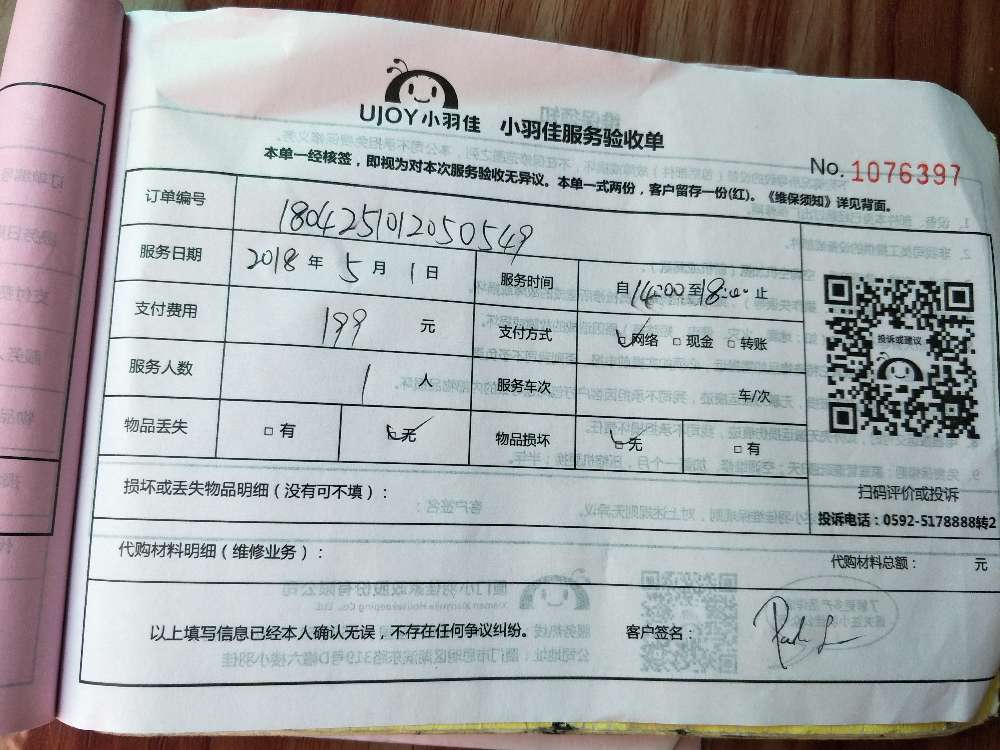 UJOY小羽佳 小羽佳服务验收单
No. 1076397
本单一经核签，即视为对本次服务验收无异议。本单一式两份，客户留存一份(红)。《维保须知》详见背面。
订单编号 1804251012050549
服务日期 2018 年 5 月 1 日 服务时间 自14:00至18:00止
支付费用 199 元 支付方式 网络 □ 现金 □ 转账
服务人数 1 人 服务车次 车/次
物品丢失 □ 有 无 物品损坏 无 □ 有
投诉或建议
扫码评价或投诉
投诉电话：0592-5178888转2
损坏或丢失物品明细（没有可不填）：
代购材料明细（维修业务）： 代购材料总额： 元
以上填写信息已经本人确认无误，不存在任何争议纠纷。 客户签名：